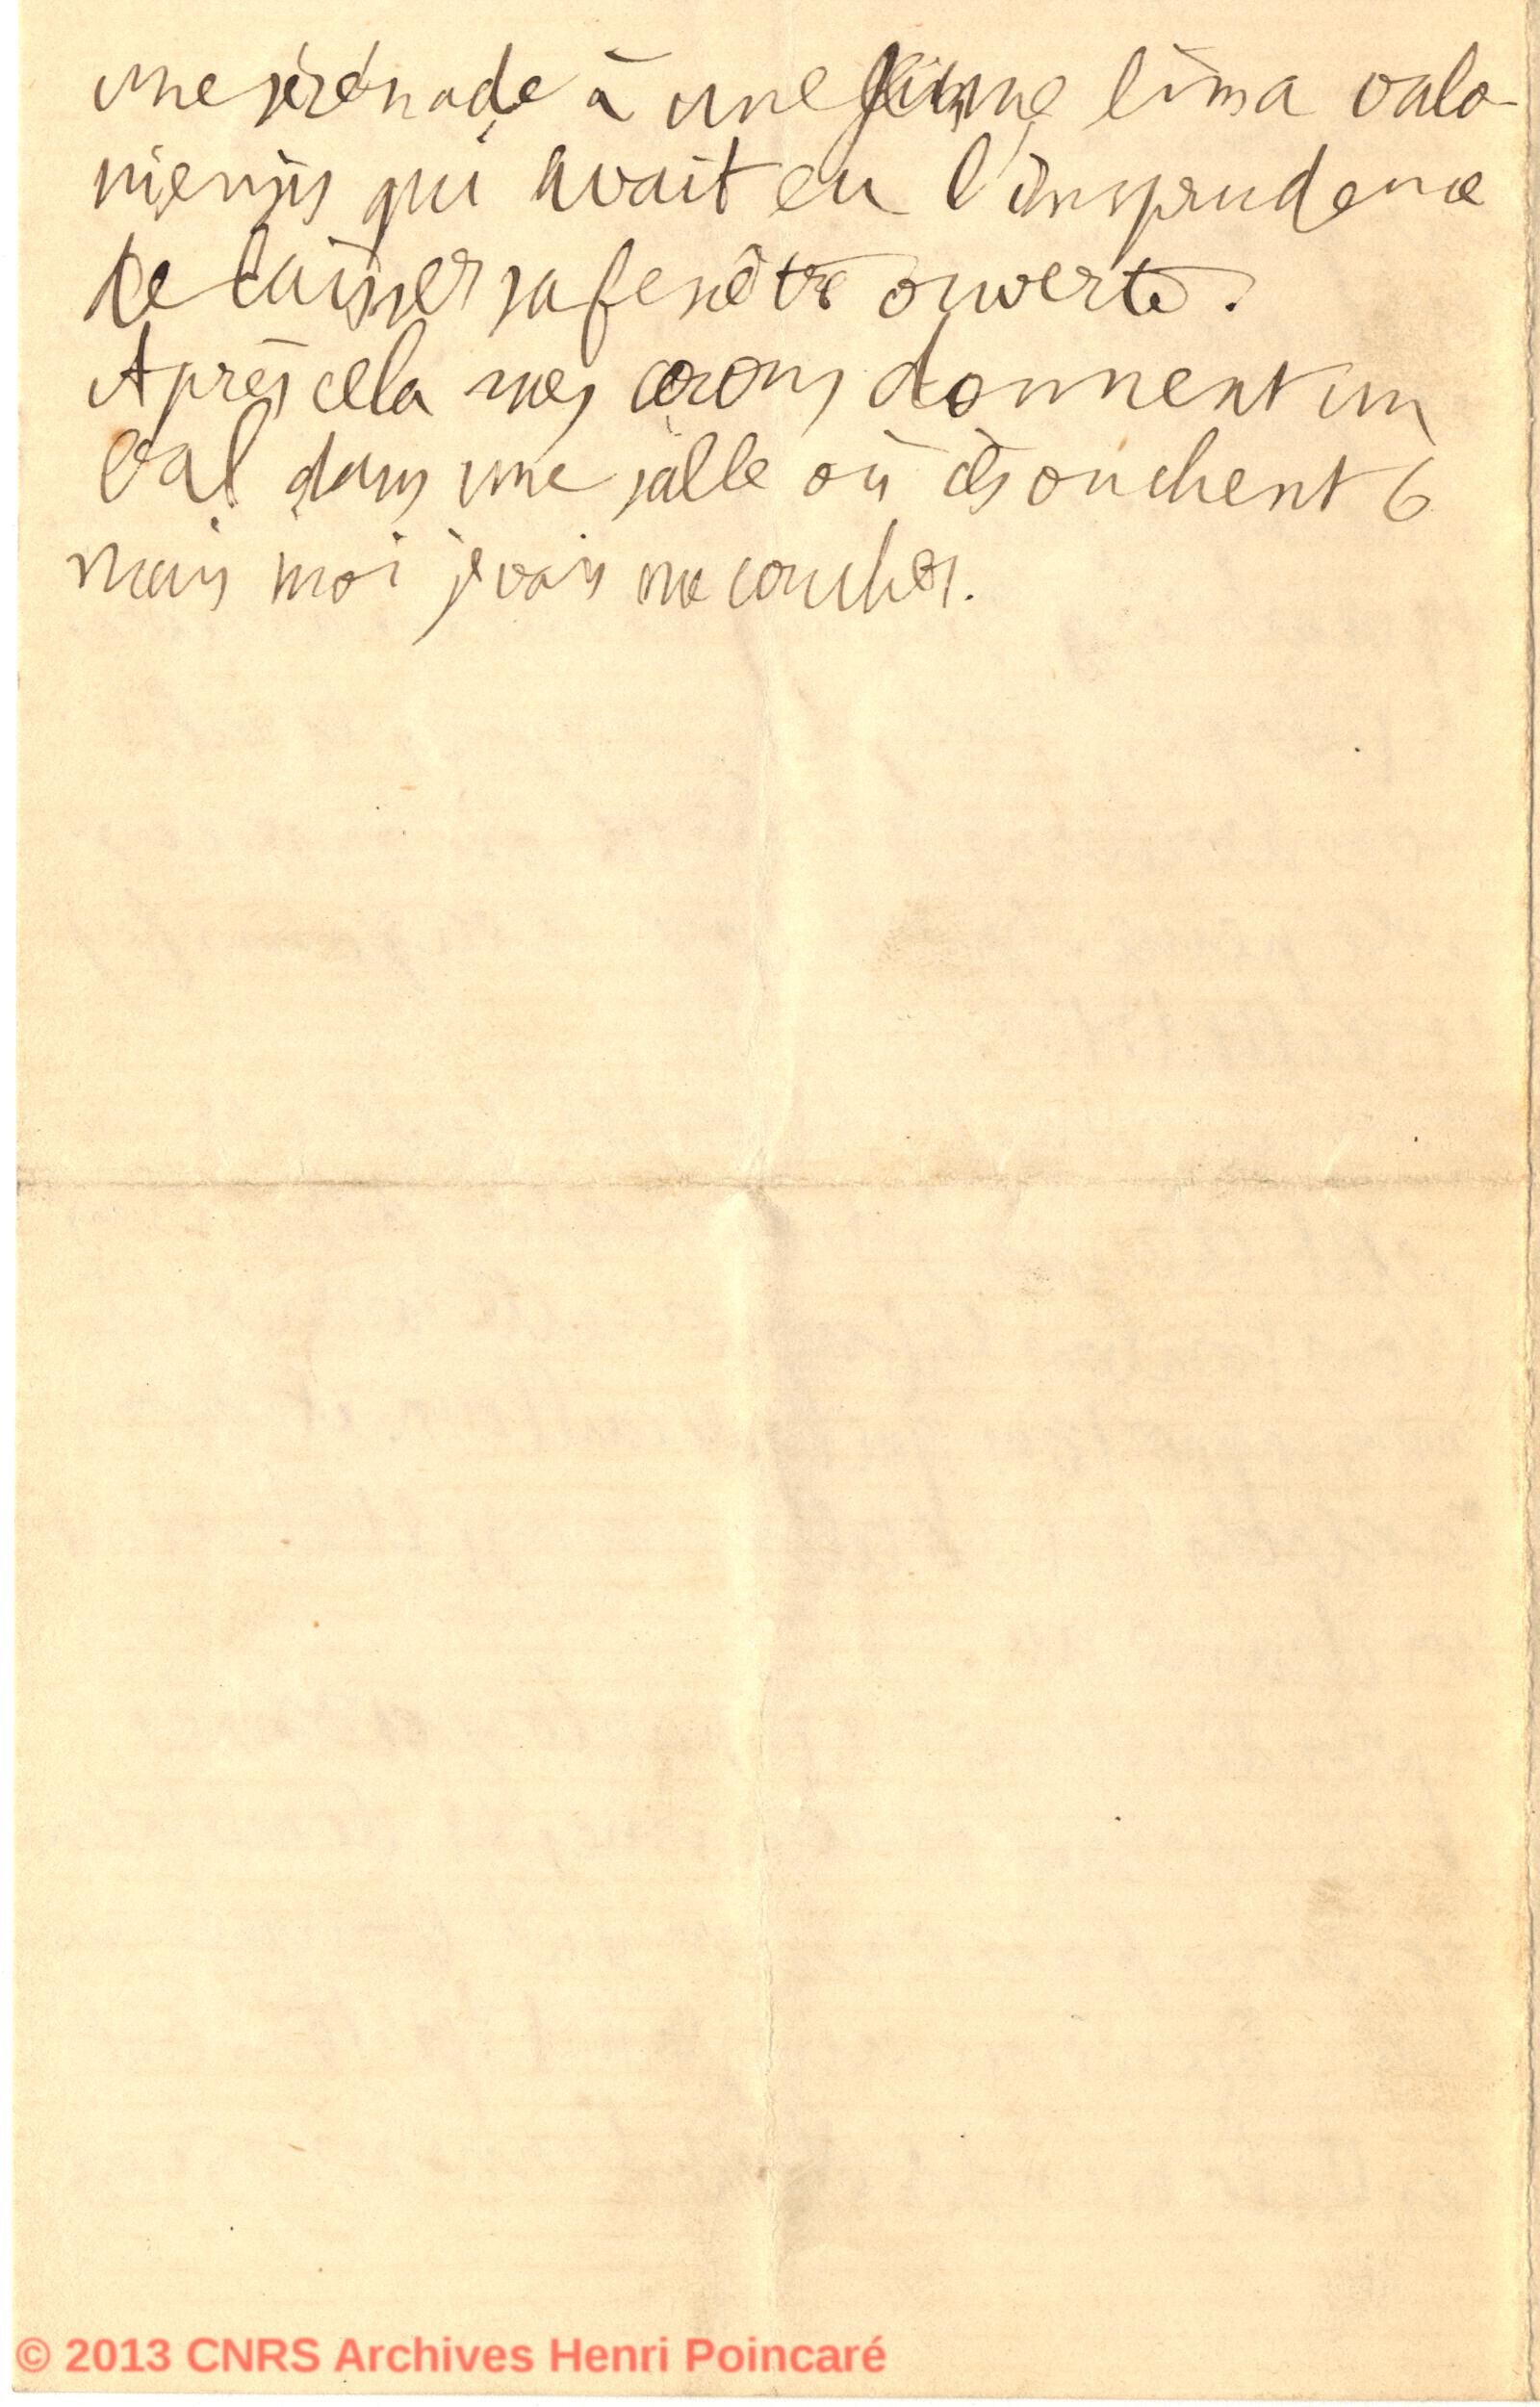 une sérénade à une lima valo-
niensis qui avait eu l'imprudence
de laisser sa fenêtre ouverte.
Après cela mes cocons donnent un
bal dans une salle où ils couchent 6
mais moi je vais me coucher.
© 2013 CNRS Archives Henri Poincaré